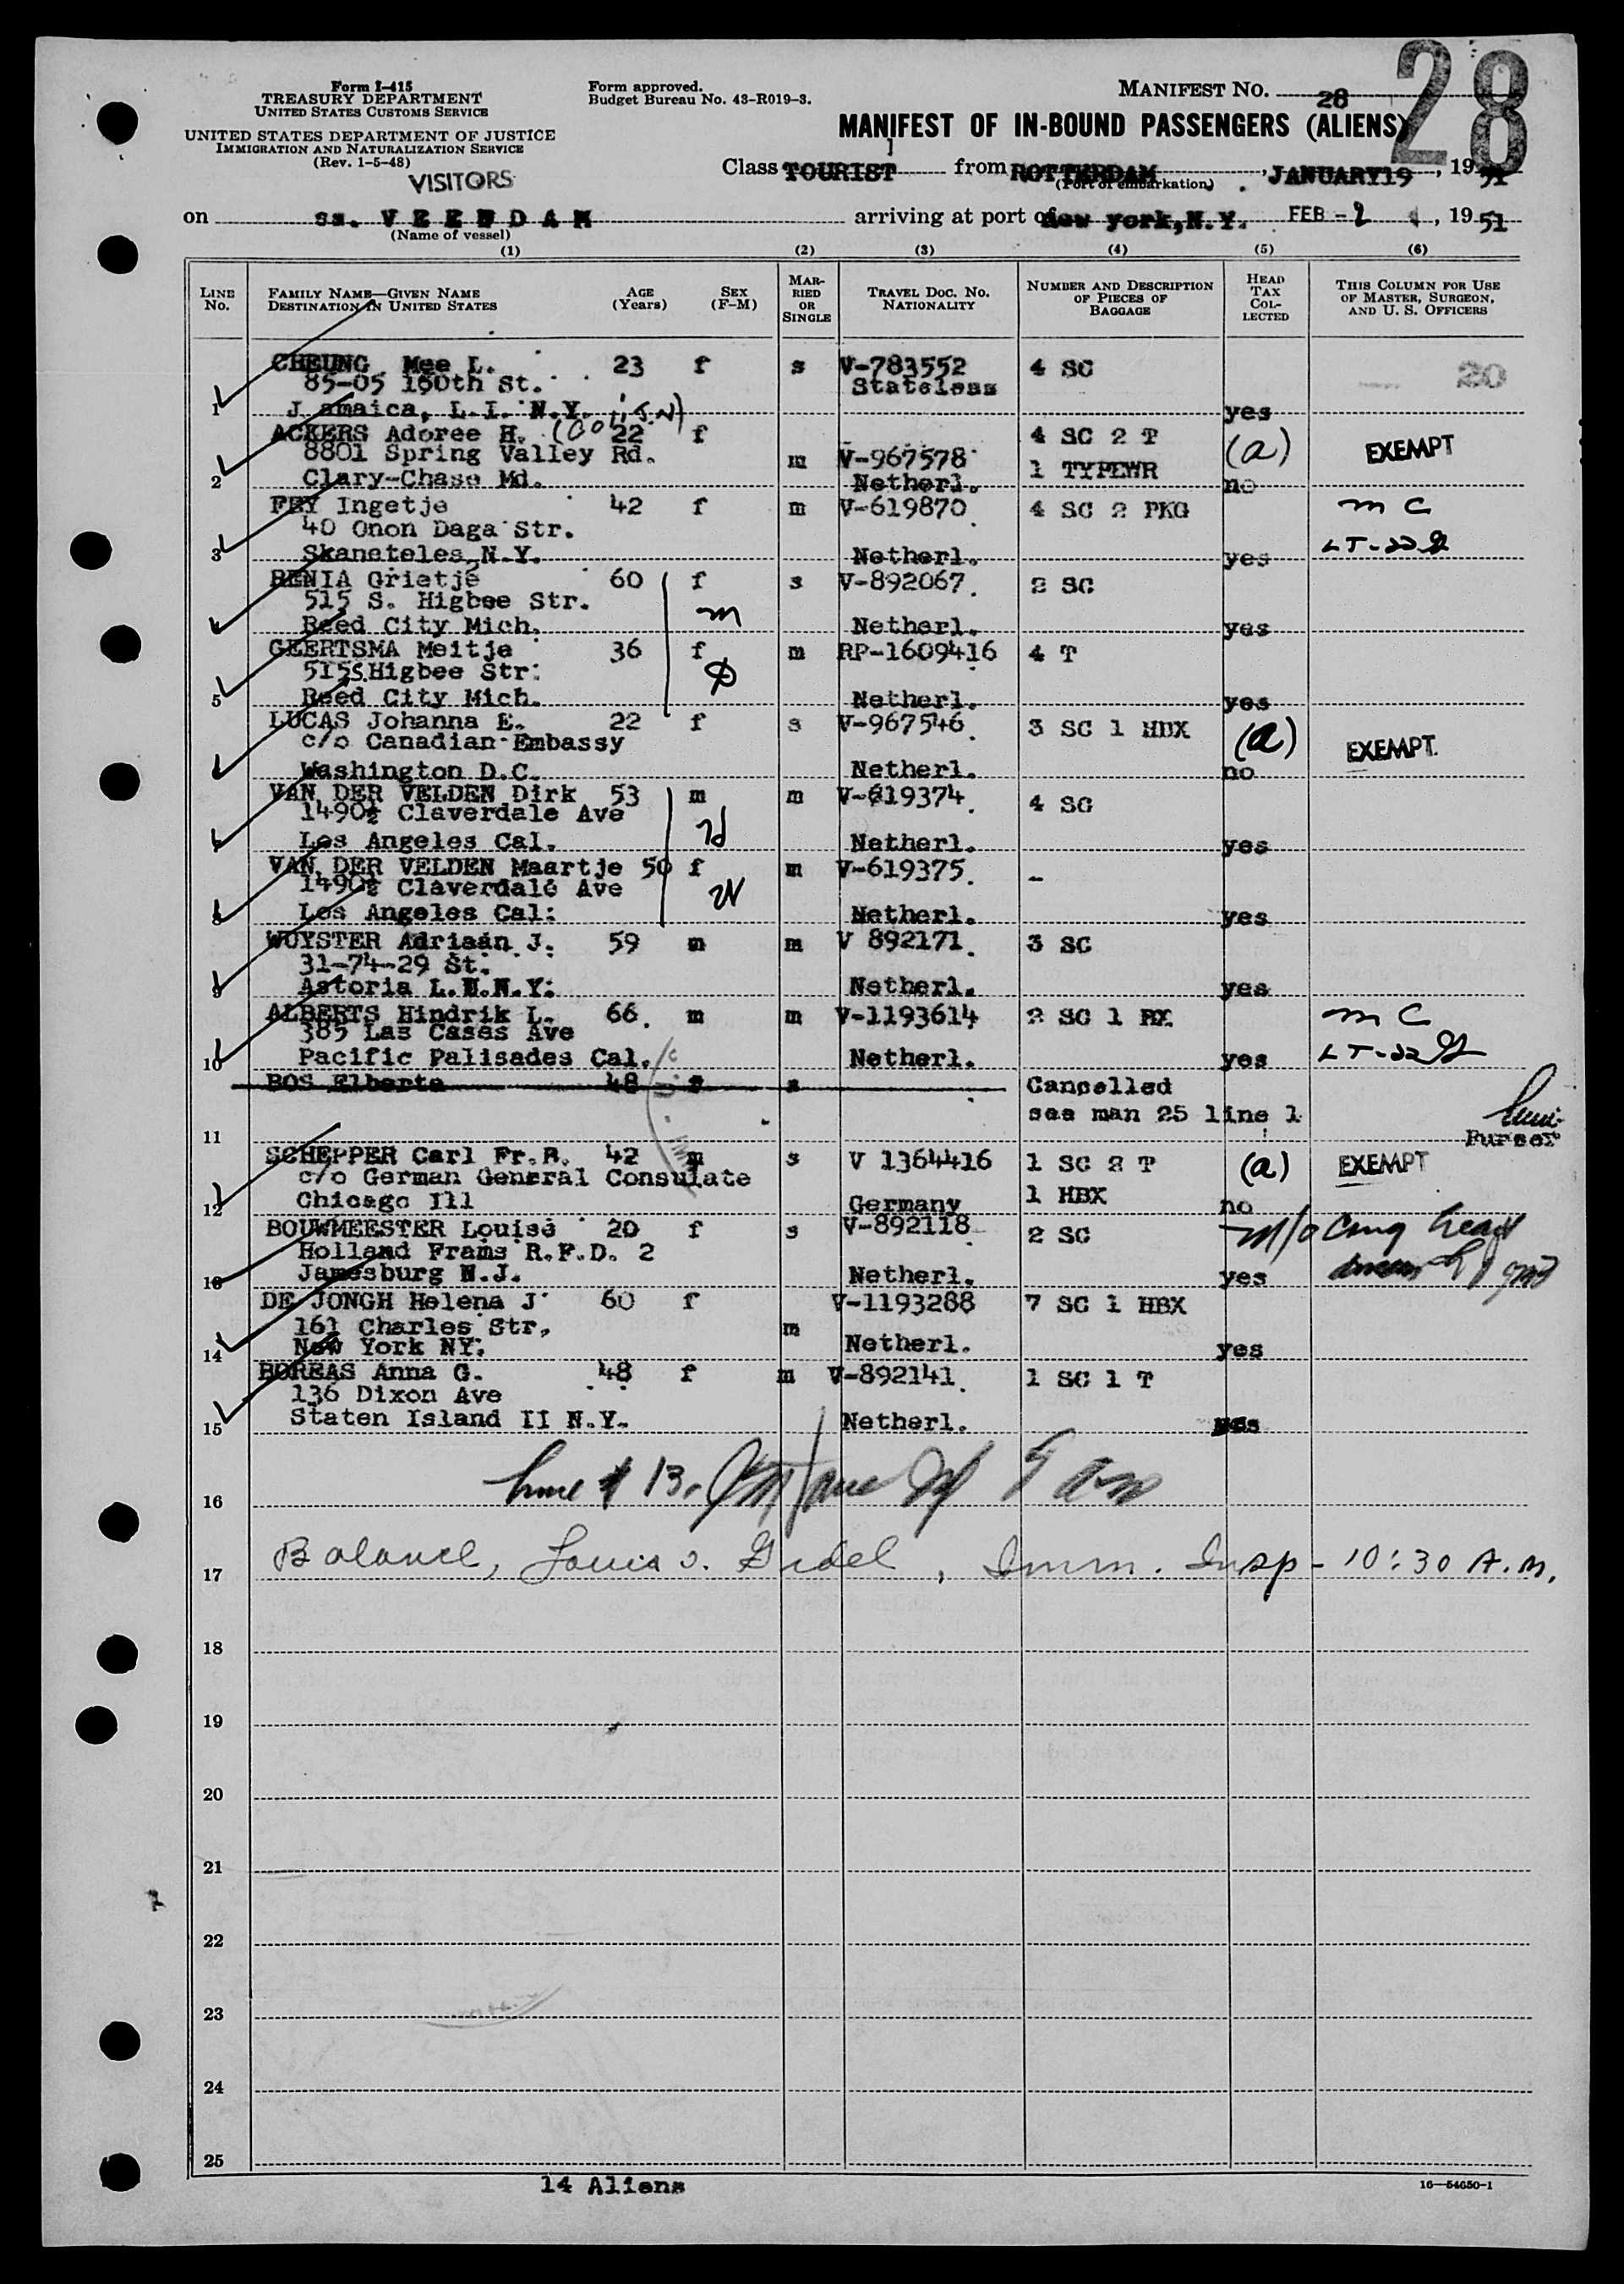 28
Form I-415
TREASURY DEPARTMENT
UNITED STATES CUSTOMS SERVICE
UNITED STATES DEPARTMENT OF JUSTICE
IMMIGRATION AND NATURALIZATION SERVICE
(Rev. 1-5-48)
VISITORS
Form approved.
Budget Bureau No. 43-R019-3.
MANIFEST NO. 28
MANIFEST OF IN-BOUND PASSENGERS (ALIENS)
Class TOURIST from ROTTERDAM, JANUARY19, 1951
(Port of embarkation)
on ss. VEENDAM arriving at port of New york,N.Y. FEB -2, 1951
(Name of vessel)
(1) (2) (3) (4) (5) (6)
LINE No. FAMILY NAME—GIVEN NAME DESTINATION IN UNITED STATES AGE (Years) SEX (F-M) MARRIED OR SINGLE TRAVEL DOC. NO. NATIONALITY NUMBER AND DESCRIPTION OF PIECES OF BAGGAGE HEAD TAX COLLECTED THIS COLUMN FOR USE OF MASTER, SURGEON, AND U. S. OFFICERS
CHEUNG Mee L. 23 f s V-783552 4 SC 20
85-05 160th St. Stateless
1 Jamaica, L.I. N.Y. yes
ACKERS Adoree H. 22 f 4 SC 2 T (a) EXEMPT
8801 Spring Valley Rd. m V-967578 1 TYPEWR
2 Clary-Chase Md. Netherl. no
FEY Ingetje 42 f m V-619870 4 SC 2 PKG m C
40 Onon Daga Str.
3 Skaneteles N.Y. Netherl. yes LT-22
RENIA Grietje 60 f s V-892067 2 SC
515 S. Higbee Str. m
Reed City Mich. Netherl. yes
GEERTSMA Meitje 36 f m RP-1609416 4 T
515S.Higbee Str:
5 Reed City Mich. Netherl. yes
LUCAS Johanna E. 22 f s V-967546 3 SC 1 HBX (a) EXEMPT.
c/o Canadian Embassy
Washington D.C. Netherl. no
VAN DER VELDEN Dirk 53 m m V-619374 4 SC
1490½ Claverdale Ave
Los Angeles Cal. Netherl. yes
VAN DER VELDEN Maartje 50 f m V-619375 -
1490½ Claverdale Ave
Los Angeles Cal: Netherl. yes
WUYSTER Adriaan J. 59 m m V 892171 3 SC
31-74-29 St.
9 Astoria L.I.N.Y: Netherl. yes
ALBERTS Hindrik L. 66 m m V-1193614 2 SC 1 BX m C
385 Las Casas Ave
10 Pacific Palisades Cal. Netherl. yes LT-22
BOS Elberta 48 f s Cancelled
see man 25 line 1
11 Purser
SCHEPPER Carl Fr.R. 42 m s V 1364416 1 SC 2 T (a) EXEMPT
c/o German General Consulate 1 HBX
12 Chicago Ill Germany no
BOUWMEESTER Louise 20 f s V-892118 2 SC
Holland Frams R.F.D. 2
13 Jamesburg N.J. Netherl. yes
DE JONGH Helena J 60 f V-1193288 7 SC 1 HBX
161 Charles Str. m
14 New York NY. Netherl. yes
BOREAS Anna G. 48 f m V-892141 1 SC 1 T
136 Dixon Ave
15 Staten Island II N.Y. Netherl. yes
16 13.
17 Balance, Louis Imm. Insp - 10:30 A.M.
18
19
20
21
22
23
24
25
14 Aliens
16—54650-1